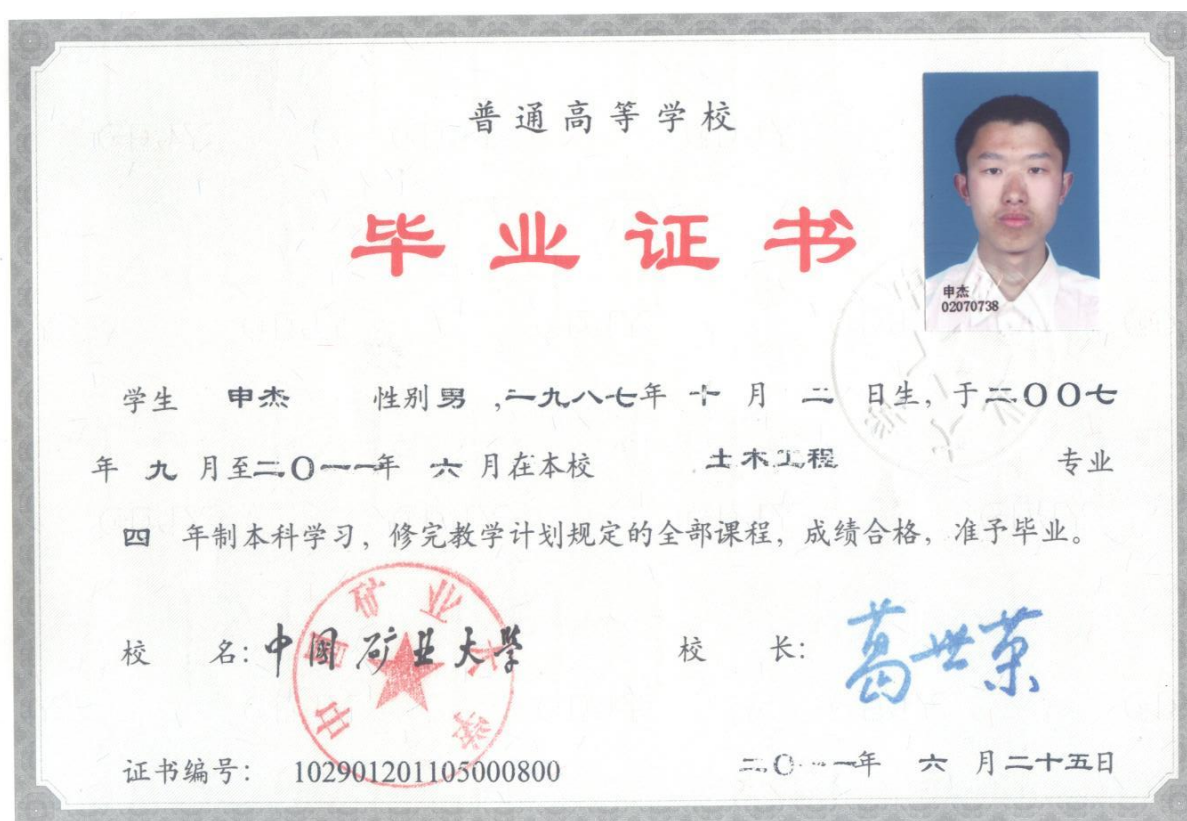 普通高等学校
毕业证书
申杰
02070738
学生 申杰 性别 男 ,一九八七年 十 月 二 日生，于二〇〇七
年 九 月至二〇一一年 六 月在本校 土木工程 专业
四 年制本科学习，修完教学计划规定的全部课程，成绩合格，准予毕业。
校 名：中国矿业大学 校 长：葛世荣
中国矿业大学
证书编号： 102901201105000800 二〇一一年 六 月二十五日